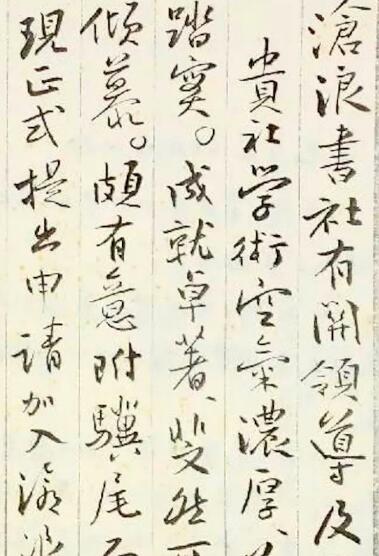 滄浪書社有關領導及
貴社学術空氣濃厚
踏实。成就卓著、斐然可
倾慕。頗有意附驥尾
现正式提出申请加入滄浪